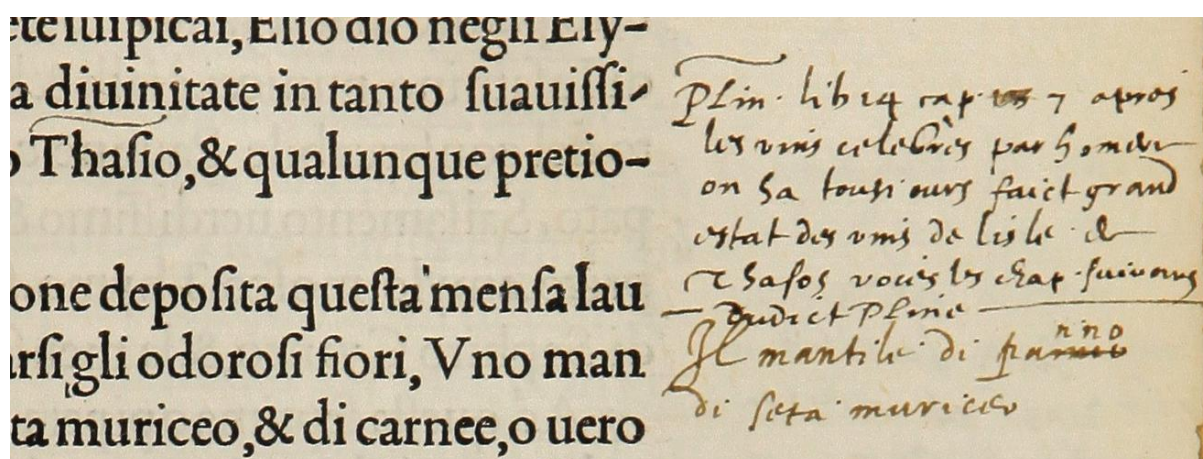 ete luſpicai, Elio dio negli Ely-
a diuinitate in tanto ſuauiſſi-
o Thaſio, & qualunque pretio-
one depoſita queſta menſa lau
arſi gli odoroſi fiori, Vno man
ta muriceo, & di carnee, o uero
Plin. lib 14 cap. 7 apres
les vins celebrès par homere
on ha tousiours faict grand
estat des vins de lisle de
Thasos voiès les chap. suivans
dudict Pline
Il mantile di panno
di seta muriceo